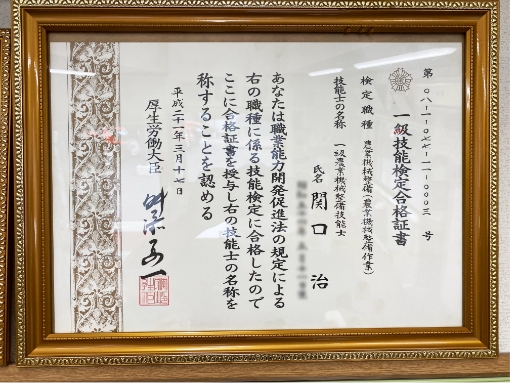 第 〇八-一-〇七七-二一-〇〇〇三 号
一級技能検定合格証書
検定職種 農業機械整備(農業機械整備作業)
技能士の名称 一級農業機械整備技能士
氏名 関口 治
あなたは職業能力開発促進法の規定による
右の職種に係る技能検定に合格したので
ここに合格証書を授与し右の技能士の名称を
称することを認める
平成二十二年三月十七日
厚生労働大臣